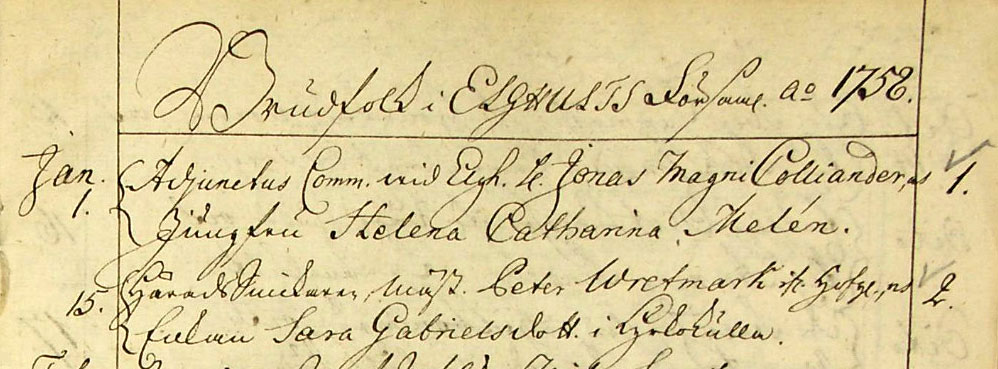 Brudfolk i ELGHULTS Församl. ao 1758.
Jan. 1. Adjunctus Comm. wid Elgh. K. Jonas Magni Colliander, 1.
Jungfru Helena Catharina Melén.
15. HäradsSnickaren, Mäst. Peter Wretmark 2.
Enkan Sara Gabrielsdott. i Kyrkokulla.